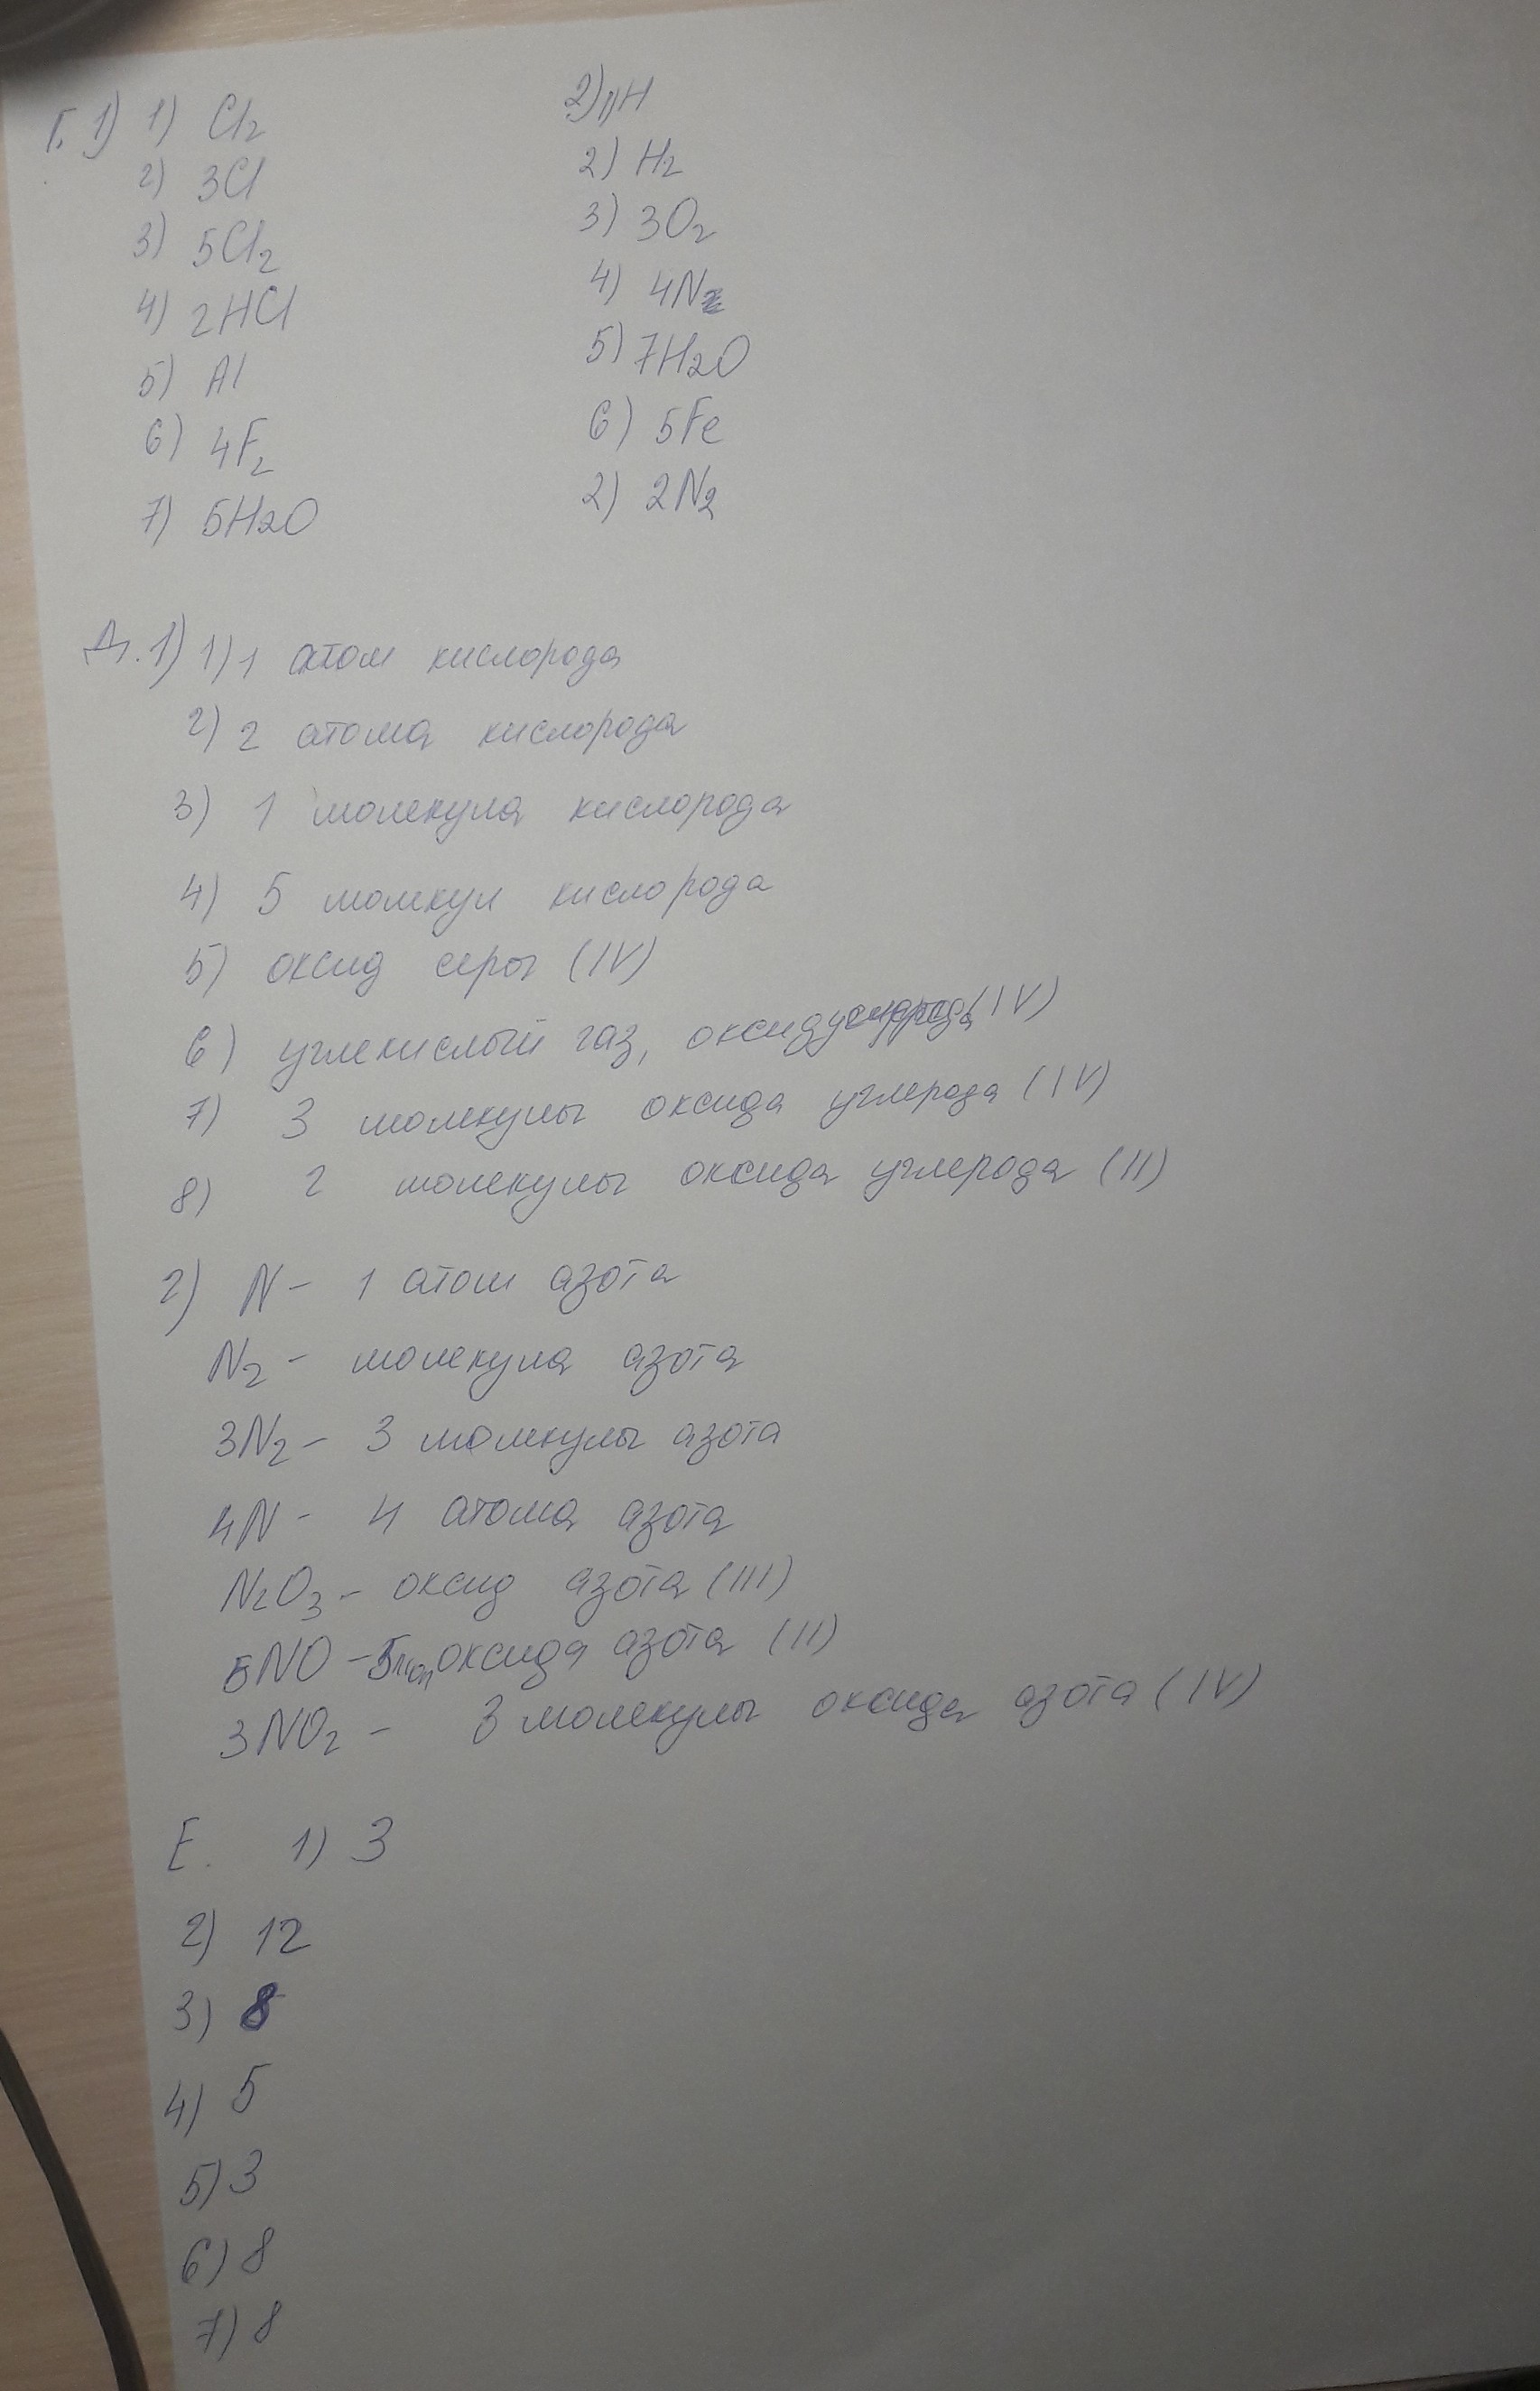 Г. 1) 1) Cl2
2) 3Cl
3) 5Cl2
4) 2HCl
5) Al
6) 4F2
7) 5H2O
2) 1) H
2) H2
3) 3O2
4) 4N
5) 7H2O
6) 5Fe
2) 2N2
Д. 1) 1) 1 атом кислорода
2) 2 атома кислорода
3) 1 молекула кислорода
4) 5 молекул кислорода
5) оксид серы (IV)
6) углекислый газ, оксид углерода (IV)
7) 3 молекулы оксида углерода (IV)
8) 2 молекулы оксида углерода (II)
2) N - 1 атом азота
N2 - молекула азота
3N2 - 3 молекулы азота
4N - 4 атома азота
N2O3 - оксид азота (III)
5NO - 5 мол оксида азота (II)
3NO2 - 3 молекулы оксида азота (IV)
Е. 1) 3
2) 12
3) 8
4) 5
5) 3
6) 8
7) 8